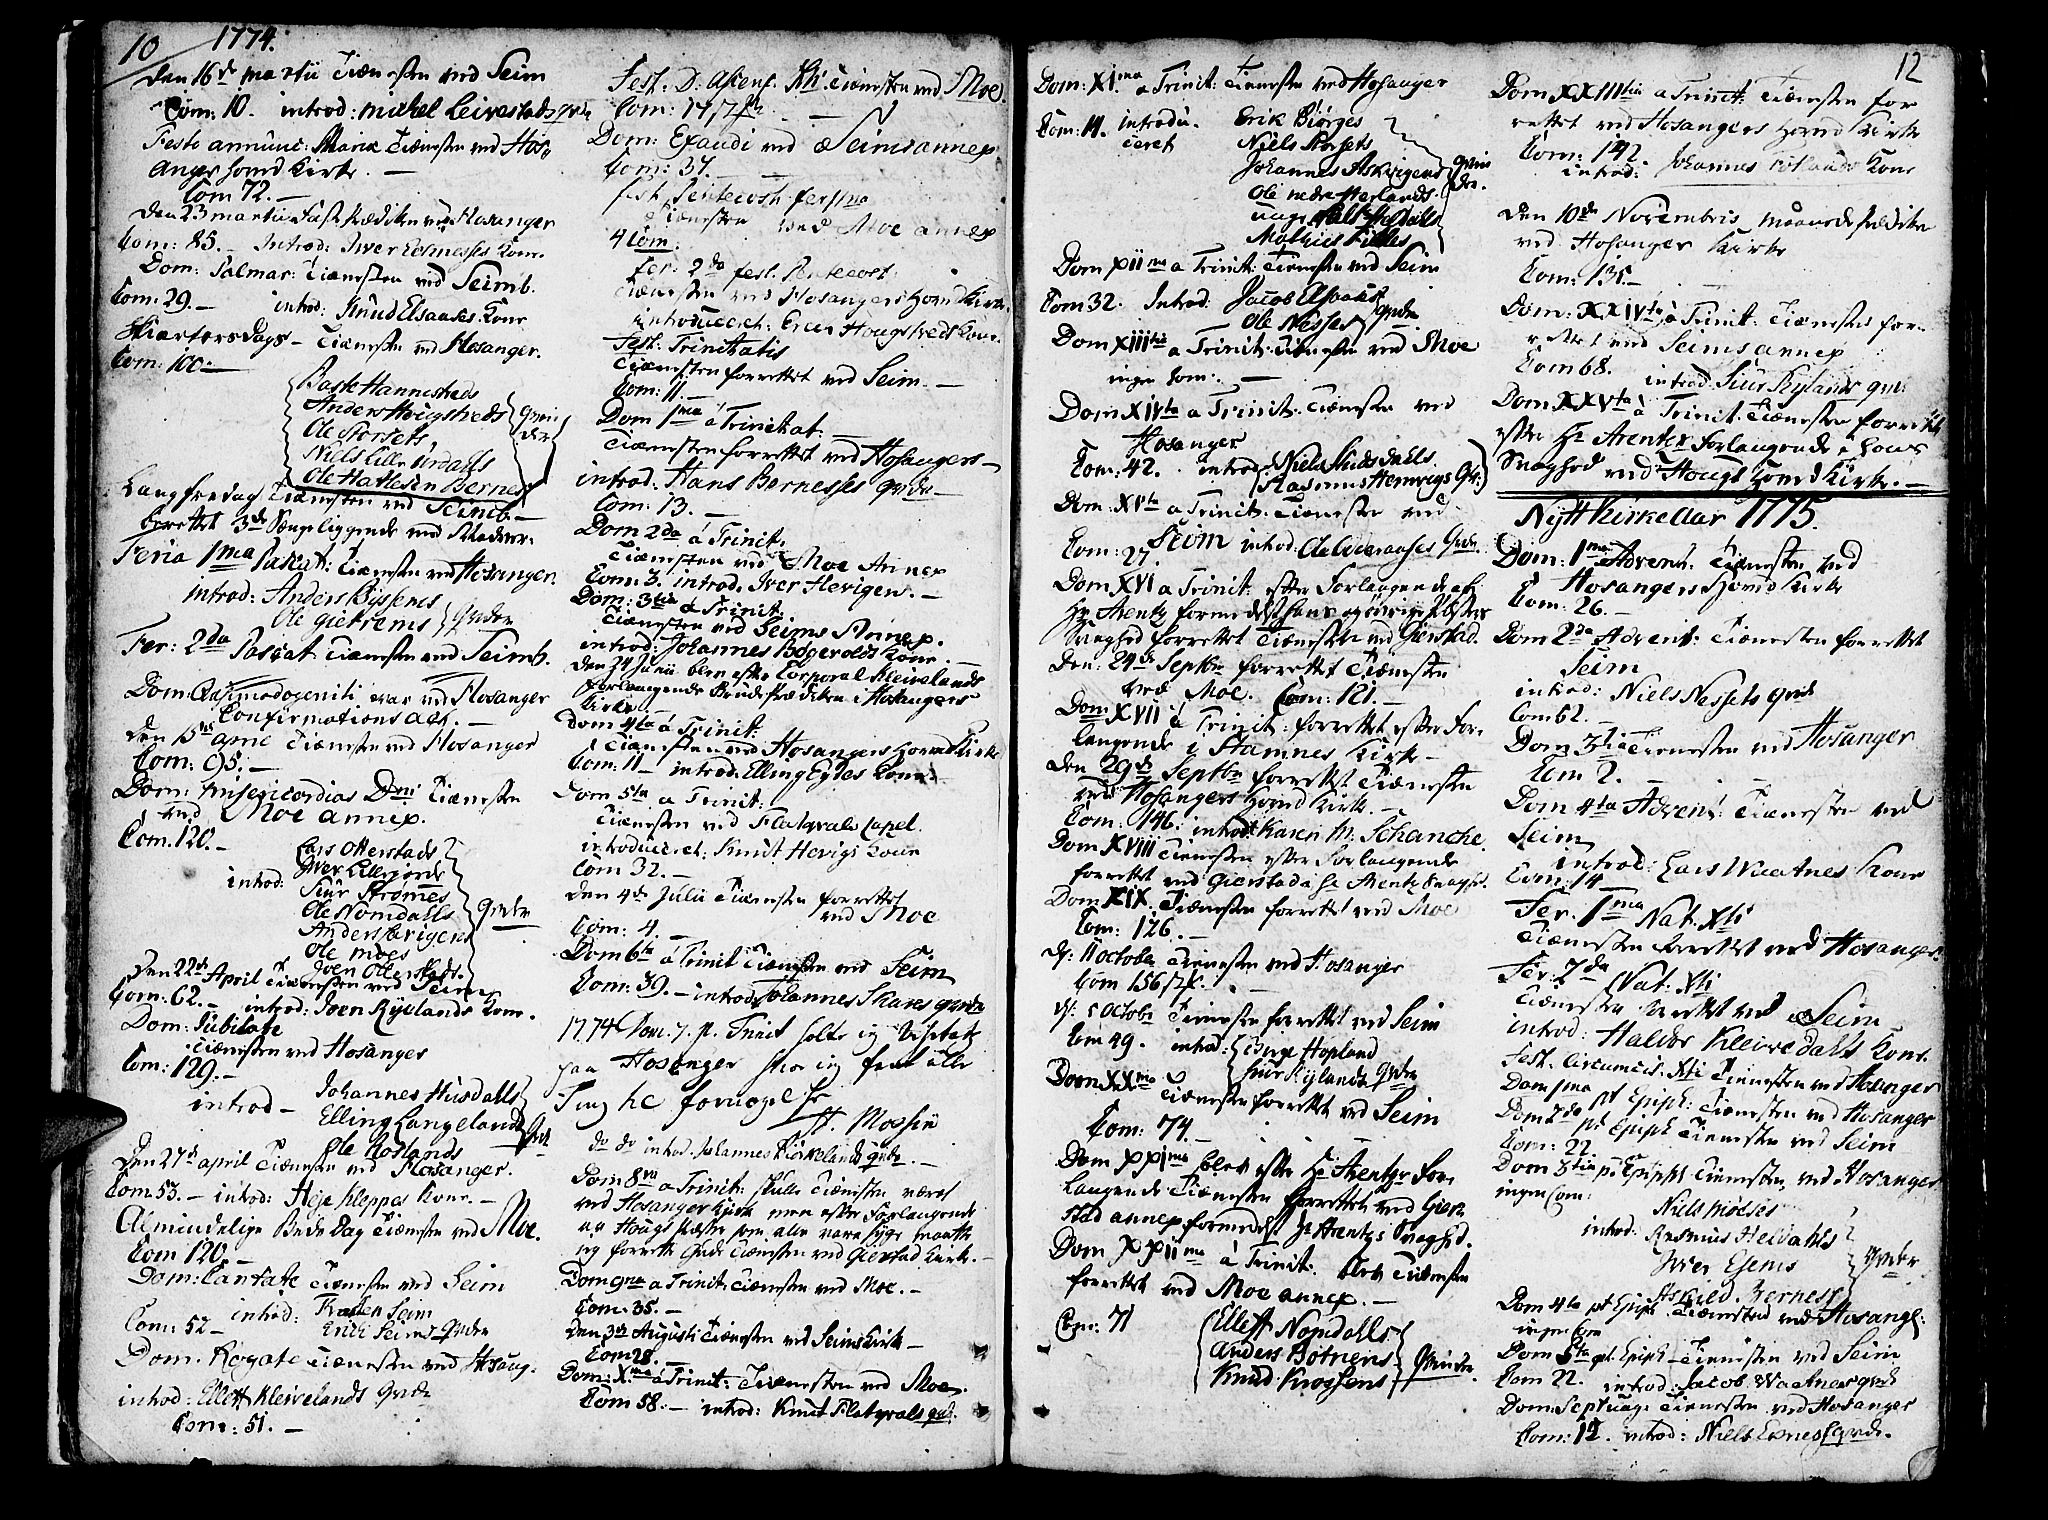 10 1774.
Den 16de Martii Tienesten ved Seim
Com: 10. introd: Michel Leirestads qvde
Festo annunc: Mariæ Tienesten ved Hos-
anger hovid Kirke. —
Com 72. —
Den 23 Martii Fast Prædiken ved Hosanger
Com: 85. — Introd: Iver Eknesses Kone.
Dom: Palmar: Tienesten ved Seimb.
Com: 29. — introd: Knud Elsaases Kone
Skiertorsdags — Tienesten ved Hosanger.
Com: 100 —
Anders Hougstveds
Ole Storsets,
Niels Lille Urdals
Ole Hatlesen Bernes
qvin
der
Langfredag Tienesten ved Seimb —
berettet 3de Sengeliggende ved
Feria 1ma Pascat: Tienesten ved Hosanger.
introd: Anders
Ole
qvder
Fer: 2da Pascat Tienesten ved Seimb.
Dom: Qvasimodogeniti var ved Hosanger
Confirmations act. —
den 15de april Tienesten ved Hosanger
Com: 95. —
Dom: Misericordias Dmi Tienesten
ved Moe annex.
Com: 120. —
introd:
Lars Otterstads
Iver Lillegierde
Siur Strømmes
Ole Nomdalls
Anders Herigens
Ole Moes
Joen Otterstads
qvder
Den 22de April Tienesten ved Seim
Com: 62. — introd: Joen Rylands Kone.
Dom: Jubilate
Tienesten ved Hosanger
Com: 129. —
introd —
Johannes Husdalls
Elling Langelands
Ole Roslands
qvd
Den 27de april Tienesten ved Hosanger.
Com: 53. — introd: Heje Kleppes Kone. —
Almindelige Bede Dag Tienesten ved Moe.
Com 120. —
Dom: Cantate Tienesten ved Seim
introd: Seim
Com: 52 — Erich Seims qvder
Dom. Rogate Tienesten ved Hosang.
introd: Ellett Kleivelands qvde
Com: 51. —
Fest. D. Ascens. Xti Tienesten ved Moe.
Com: 17
Dom: Exaudi ved Seims annex
Com: 37. —
fest Pentecosti fer 1ma
Tienesten ved Moe annex
4 Com.
fer: 2da fest. Pentecost:
Tienesten ved Hosangers Hovid Kirke.
introduceret: Hougstveds Kone.
Fest: Trinitatis
Tienesten forrettet ved Seim. —
Com: 11. —
Dom 1ma á Trinitat: —
Tienesten forrettet ved Hosangers —
introd: Hans Bernesses qvde —
Com: 13. —
Dom 2da á Trinit:
Tienesten ved Moe Annex
Com: 3. introd: Iver Hevigen. —
Dom: 3tia á Trinit:
Tienesten ved Seims Annex.
introd: Johannes Bøgevolds Kone. —
Den 24 Junii blev efter Corporal Kleivelands
forlangende Brude Prædiken i Hosangers
Kirke.
Dom 4ta á Trinit:
Tienesten ved Hosangers hovid Kirke
Com: 11 — introd. Elling Kone.
Dom 5ta a Trinit:
Tienesten ved Flatqvals Capel.
introduceret: Knut Hevigs Kone
Com 32. —
Den 4de Julii Tienesten forrettet
ved Moe
Com: 4. —
Dom 6ta á Trinit Tienesten ved Seim
Com: 39. — introd: Johannes Skars qvde
1774 Dom: 7. p. Trinit holte ieg Visitatz
paa Hosanger hvor ieg fant alle
Ting
de do introd: Johannes Birkelands qvde. —
Dom 8va a Trinit: skulle Tienesten været
ved Hosanger Kirk men efter Forlangende
af Hougs Præster som alle vare syge maatte
ieg forrette Guds Tienesten ved Gierstad Kirk. —
Dom 9na a Trinit: Tienesten ved Moe. —
Com: 35. —
Den 3de Augusti Tienesten ved Seims Kirk —
Com 28. —
Dom: Xma a Trinit: Tienesten ved Moe.
Com 58. — introd: Knut Flatqvals qvd.
12
Dom: XIma a Trinit: Tienesten ved Hosanger
Com: 14. introdu-
ceret
Erik Biørges
Niels Storsets
Johannes Askvigens
Ole nedre Herlands
Mathies
qvin
der.
Dom XIIma a Trinit: Tienesten ved Seim
Com 32. Introd: Jacob Elsaas
Ole Nesses
qvder
Dom XIIItia a Trinit: Tienesten ved Moe
ingen Com: —
Dom XIVta a Trinit: Tienesten ved
Hosanger
Com: 42. introd: Niels Husdalls
Rasmus Hemvigs qv:
Dom: XVta a Trinit: Tienesten ved
Seim introd: qvde.
Com: 27.
Dom XVI a Trinit: efter Forlangende af
Hr Arentz formedelst hans og øvrige Præsters
svaghed forrettet Tienesten ved Gierstad.
Den: 24de Septbr forrettet Tienesten
ved Moe. Com: 121. —
Dom XVII á Trinit: forrettet efter For-
langende i Stamnes Kirk —
Den 29de Septbr forrettet Tienesten
ved Hosangers hovid Kirk. —
Com: 146: introd: Karen M: Schanche.
Dom XVIII Tienesten efter Forlangende
forrettet ved Gierstad á Hr Arentz svaghed.
Dom XIX. Tienesten forrettet ved Moe
Com: 126. —
d: 11 October Tienesten ved Hosanger
Com 156
d: 5 Octobr Tienesten forrettet ved Seim
Com 49. introd: Børge Hopland
Siur Rylands qvder
Dom XXma
Tienesten forrettet ved Seim
Com: 74. —
Dom XXIma blev efter Hr Arentzes For-
langende Tienesten forrettet ved Gier-
stad annex formedelst Hr Arentzes Svaghed.
Dom XXIIma á Trinit: blev Tienesten
forrettet ved Moe annex. —
Com: 71
Ellett Nomdalls
Anders Botnens
Knud Krossens
qvinder.
Dom XXIIItia a Trinit: Tienesten for
rettet ved Hosangers hovid Kirke
Com: 142.
introd: Johannes Kone
Den 10de Novembris Maaneds Prædiken
ved Hosanger Kirke
Com: 135. —
Dom: XXIVta á Trinit: Tienesten for-
rettet ved Seims annex
Com 68. introd: Siur Rylands qvd:
Dom: XXVta á Trinit: Tienesten forrettet
efter Hr Arentzes Forlangende á hans
Svaghed ved Hougs Hovid Kirke. —
Nytt Kirke Aar 1775.
Dom: 1ma Advent: Tienesten ved
Hosangers Hovid Kirke
Com: 26. —
Dom 2da Advent: Tienesten forrettet
Seim
introd: Niels Nessets qvde
Com 62. —
Dom 3tia Tienesten ved Hosanger
Com 2. —
Dom 4ta Advent: Tienesten ved
Seim
introd: Lars Waatnes Kone
Com: 14
Fer. 1ma Nat. Xti
Tienesten forrettet ved Hosanger.
Fer. 2da Nat: Xti
Tienesten forrettet ved Seim
introd: Haldor Kleivedahls Kone.
Fest. Circumcis: Xti Tienesten ved Hosanger
Dom 1ma pt Epiph: Tienesten ved Hosanger
Dom 2da pt Epiph Tienesten ved Seim
Com: 22.
Dom 3tia pt Epiph Tienesten ved Hosanger
ingen Com:
introd:
Niels Moeses
Rasmus Heldahls
Iver
Askild Bernes
qvinder
Dom 4ta pt Epiph Tienesten ved Hosang:
ingen Com
Dom 5ta pt. Epiph — Tienesten ved Seim
Com 22. introd: Jacob Waatnes qvde
Dom: Septuag: Tienesten ved Hosanger
Com: 12. introd: Niels Eknes qvde.